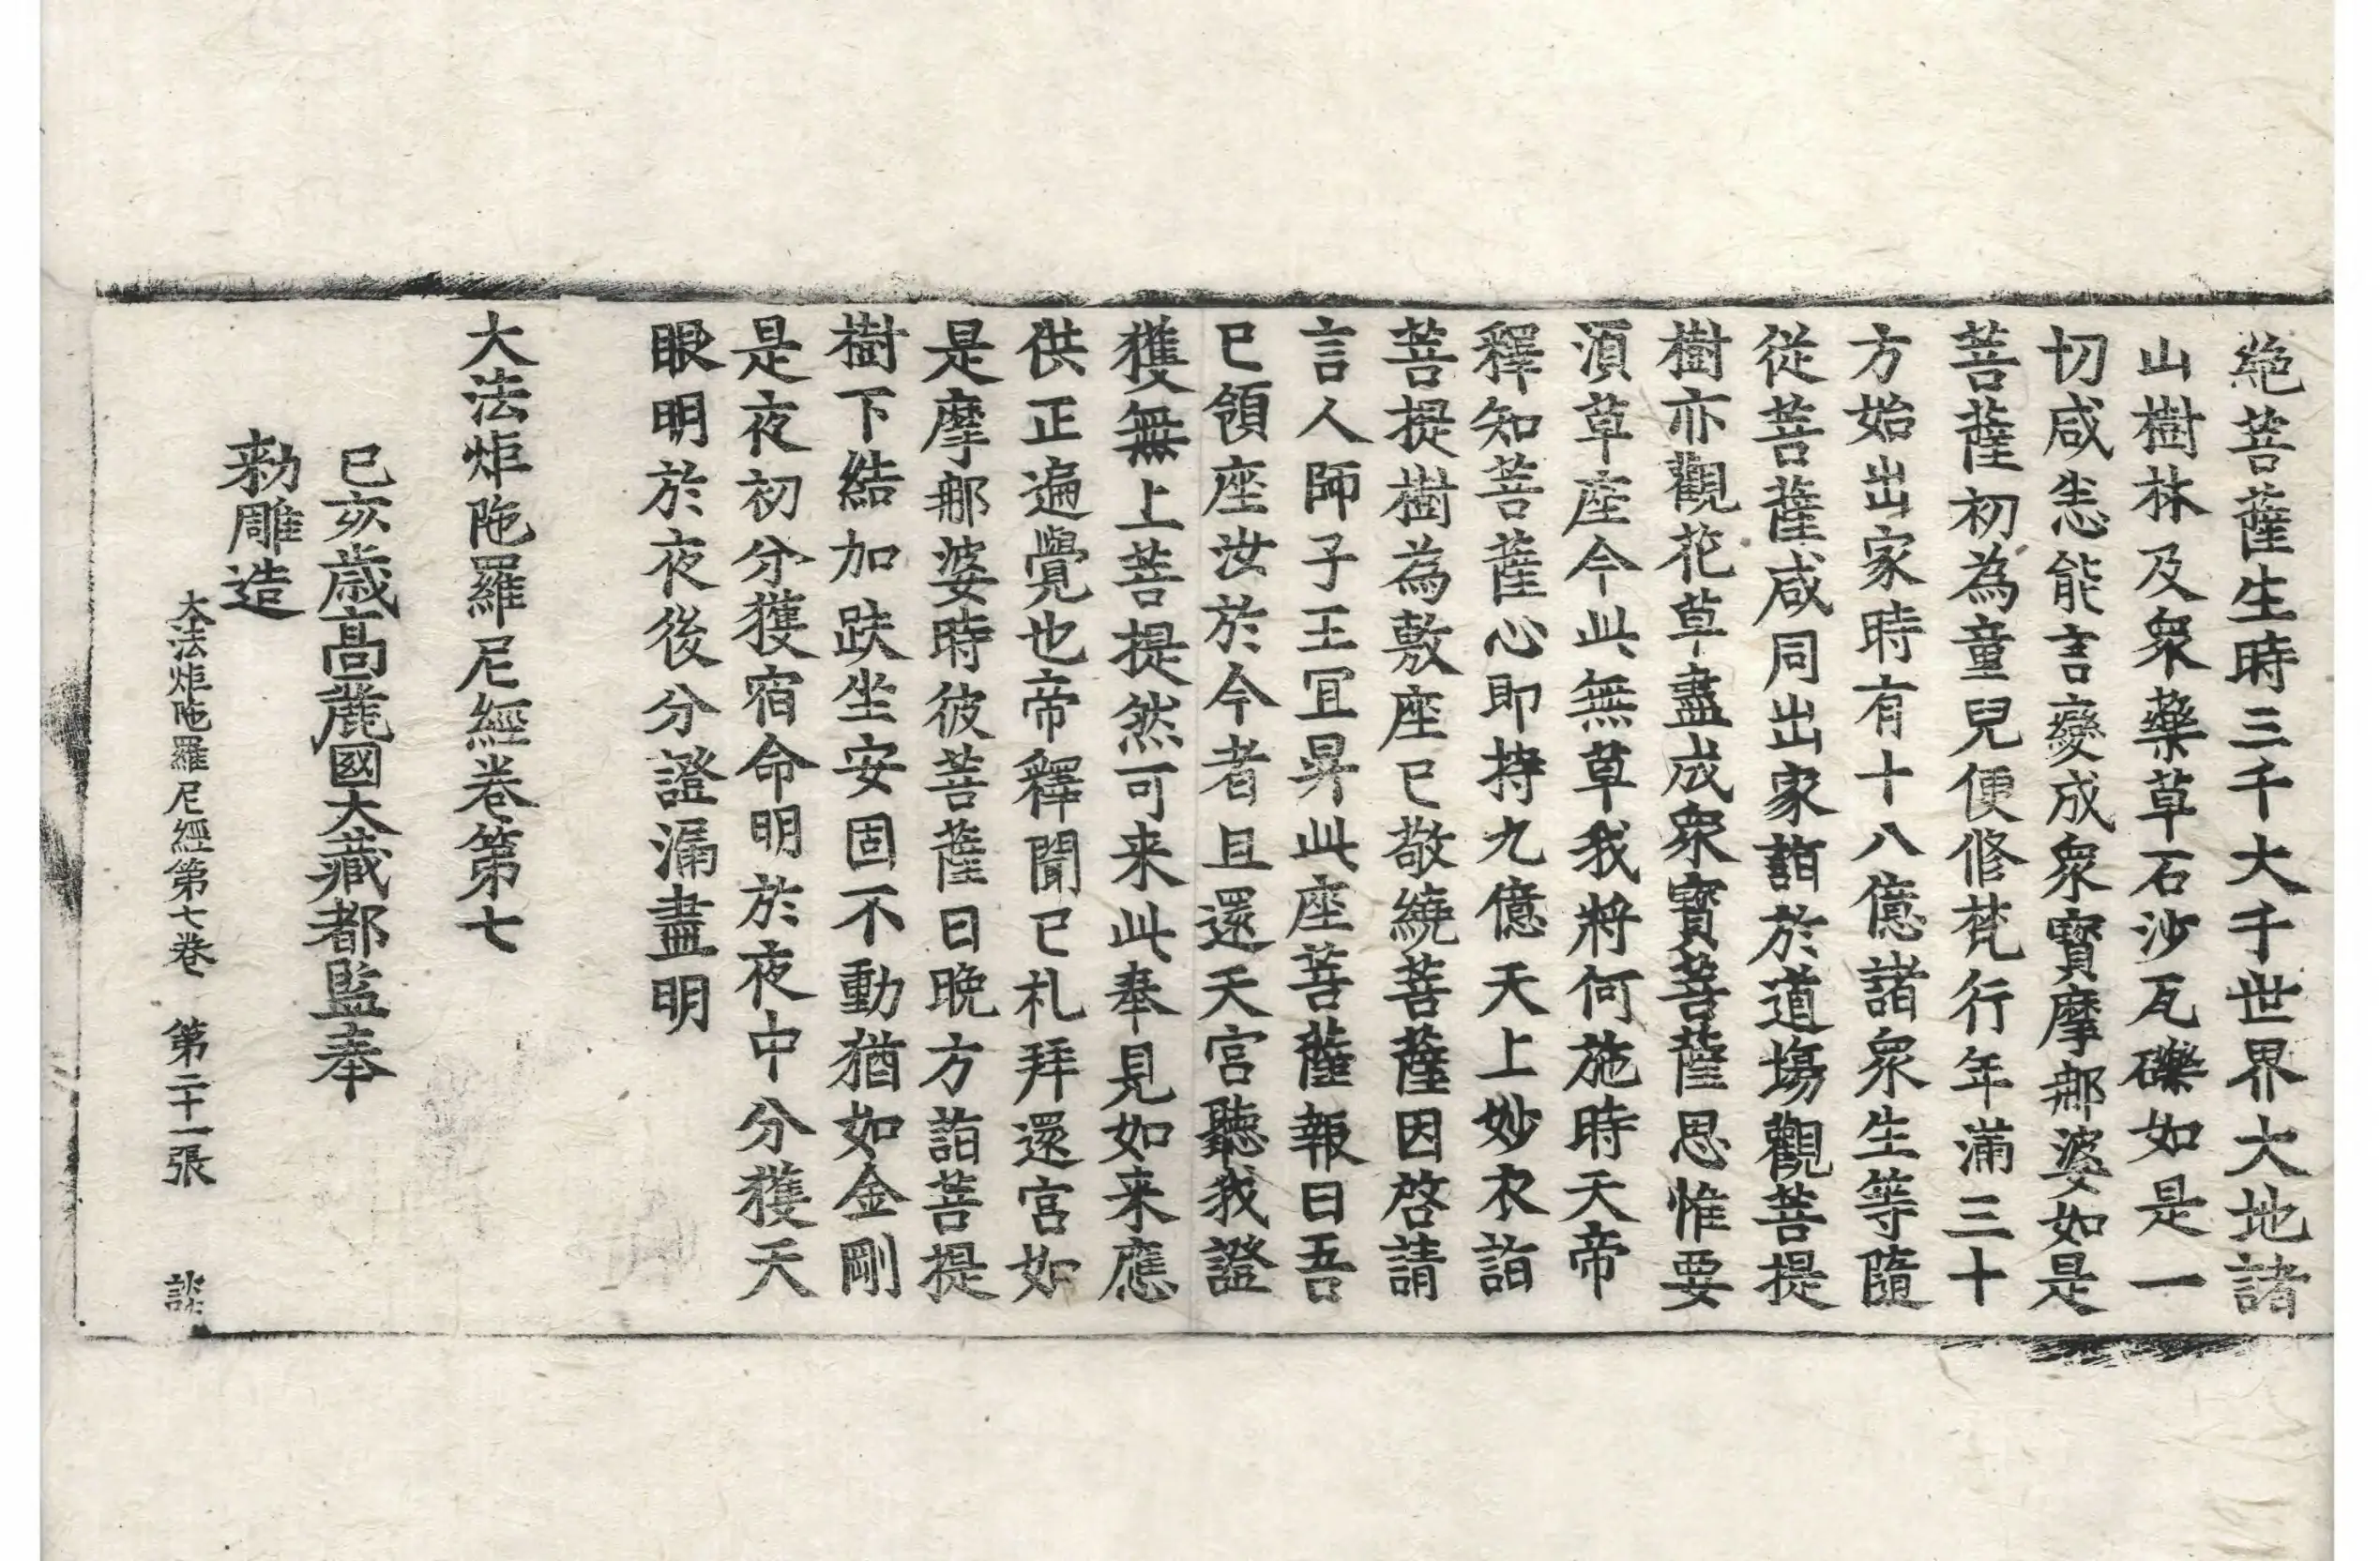 绝菩薩生時三千大千世界大地諸
山樹林及衆藥草石沙瓦礫如是一
切咸悉能言變成衆寶摩那婆如是
菩薩初為童兒便修梵行年滿三十
方始出家時有十八億諸衆生等隨
從菩薩咸同出家詣於道場觀菩提
樹亦觀花草盡成衆寶菩薩思惟要
須草座今此無草我將何施時天帝
釋知菩薩心即持九億天上妙衣詣
菩提樹為敷座已敬繞菩薩因啓請
言人師子王冝昇此座菩薩報曰吾
已領座汝於今者且還天宮聽我證
獲無上菩提然可来此奉見如来應
供正遍覺也帝釋聞已礼拜還宮如
是摩那婆時彼菩薩日晚方詣菩提
樹下結加趺坐安固不動猶如金剛
是夜初分獲宿命明於夜中分獲天
眼明於夜後分證漏盡明
大法炬陁羅尼經卷第七
己亥歳高麗國大藏都監奉
勑雕造
大法炬陁羅尼經第七卷 第二十一張 談